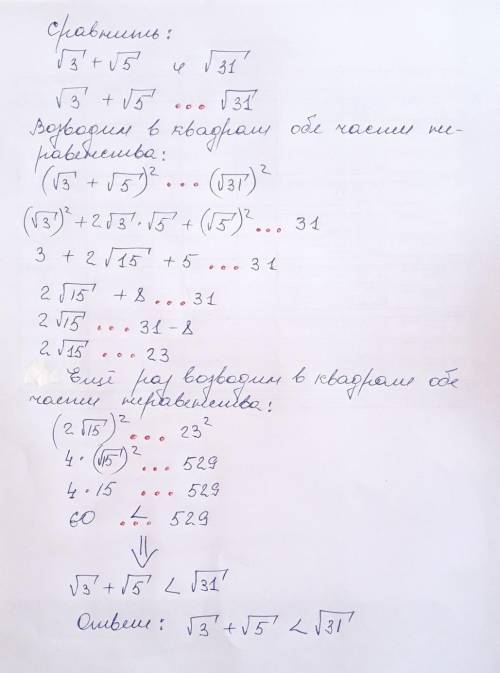 Сравнить:
√3 + √5 и √31
√3 + √5 ... √31
Возводим в квадрат обе части не-
равенства:
(√3 + √5)² ... (√31)²
(√3)² + 2√3·√5 + (√5)² ... 31
3 + 2√15 + 5 ... 31
2√15 + 8 ... 31
2√15 ... 31 - 8
2√15 ... 23
Ещё раз возводим в квадрат обе
части неравенства:
(2√15)² ... 23²
4·(√15)² ... 529
4·15 ... 529
60 ... < 529
⇓
√3 + √5 < √31
Ответ: √3 + √5 < √31